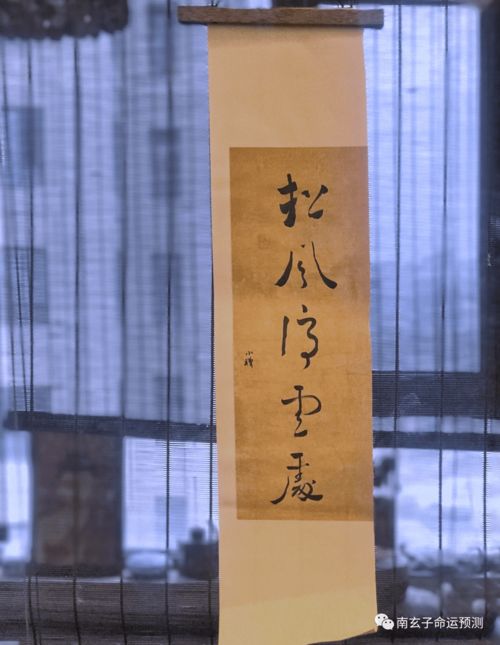 松风停雲處
南玄子命运预测